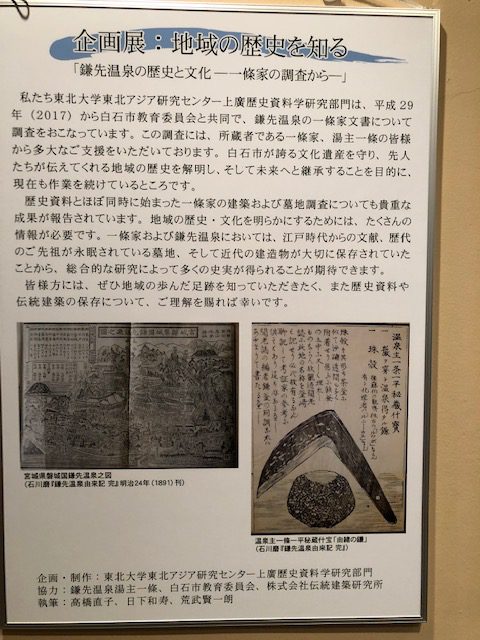 企画展：地域の歴史を知る
「鎌先温泉の歴史と文化 ―一條家の調査から―」
私たち東北大学東北アジア研究センター上廣歴史資料学研究部門は、平成29
年（2017）から白石市教育委員会と共同で、鎌先温泉の一條家文書について
調査をおこなっています。この調査には、所蔵者である一條家、湯主一條の皆様
から多大なご支援をいただいております。白石市が誇る文化遺産を守り、先人
たちが伝えてくれる地域の歴史を解明し、そして未来へと継承することを目的に、
現在も作業を続けているところです。
歴史資料とほぼ同時に始まった一條家の建築および墓地調査についても貴重な
成果が報告されています。地域の歴史・文化を明らかにするためには、たくさんの
情報が必要です。一條家および鎌先温泉においては、江戸時代からの文献、歴代
のご先祖が永眠されている墓地、そして近代の建造物が大切に保存されていた
ことから、総合的な研究によって多くの史実が得られることが期待できます。
皆様方には、ぜひ地域の歩んだ足跡を知っていただきたく、また歴史資料や
伝統建築の保存について、ご理解を賜れば幸いです。
宮城県磐城国鎌先温泉之図
（石川磨『鎌先温泉由来記 完』明治24年（1891）刊）
温泉主一条一平秘蔵什寳
温泉主一條一平秘蔵什宝「由緒の鎌」
（石川磨『鎌先温泉由来記 完』）
企画・制作：東北大学東北アジア研究センター上廣歴史資料学研究部門
協力：鎌先温泉湯主一條、白石市教育委員会、株式会社伝統建築研究所
執筆：高橋直子、日下和寿、荒武賢一朗